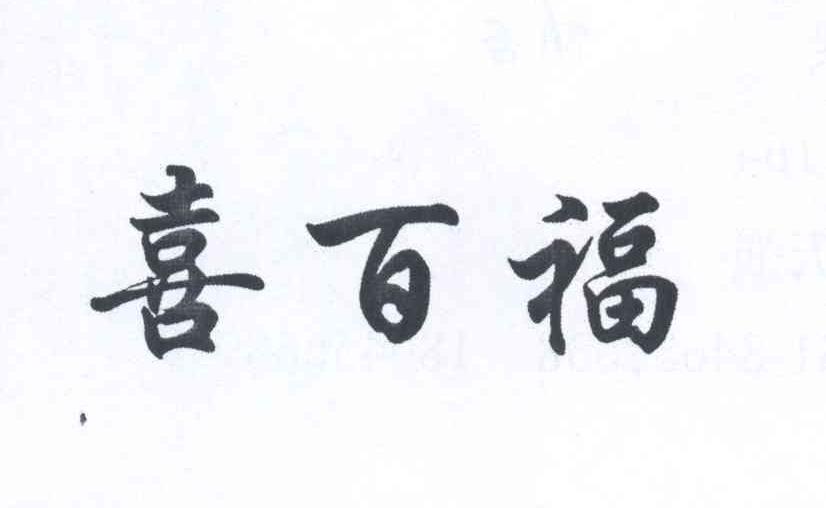 喜百福